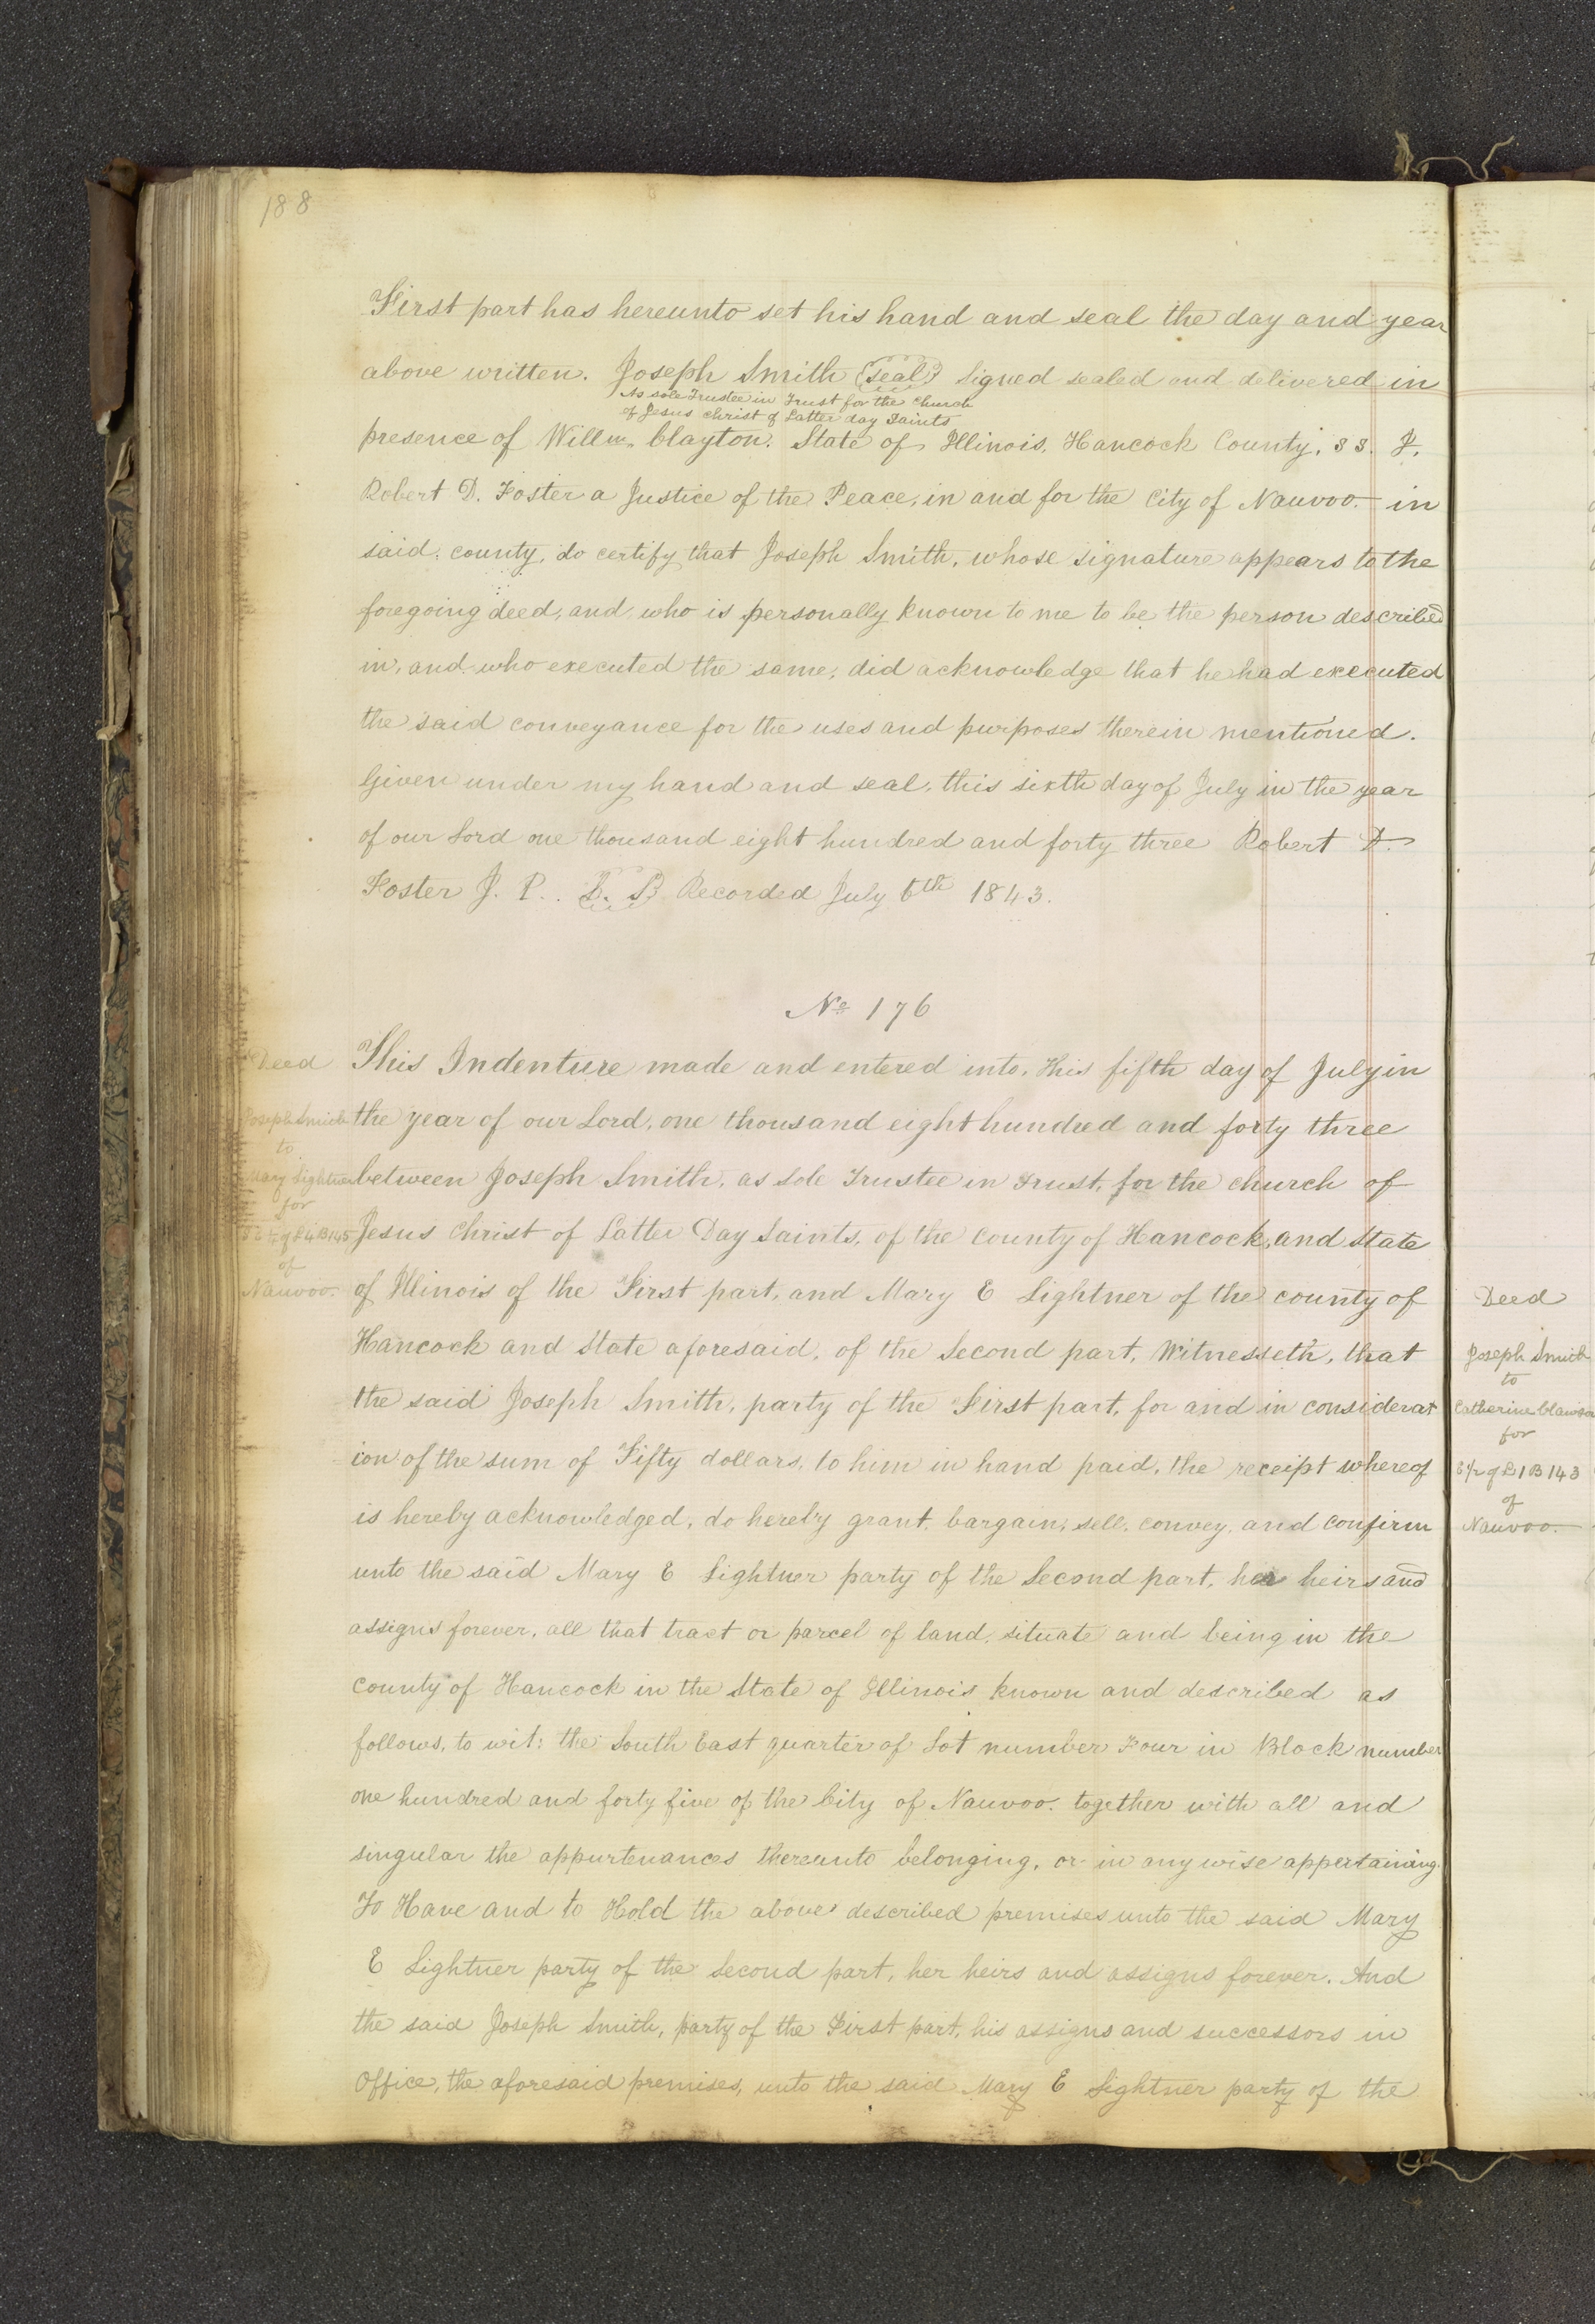 188
First part has hereunto set his hand and seal the day and year
above written. Joseph Smith (seal) Signed sealed and delivered in
As sole Trustee in Trust for the church
of Jesus christ of Latter day Saints
presence of Willm. Clayton. State of Illinois, Hancock County, SS. I,
Robert D. Foster a Justice of the Peace, in and for the City of Nauvoo in
said county, do certify that Joseph Smith, whose signature appears to the
foregoing deed, and, who is personally known to me to be the person described
in, and who executed the same, did acknowledge that he had executed
the said conveyance for the uses and purposes therein mentioned.
Given under my hand and seal, this sixth day of July in the year
of our Lord one thousand eight hundred and forty three Robert D.
Foster J. P. L. S. Recorded July 6th 1843.
No 176
Deed
Joseph Smith
to
Mary Lightner
for
S E 1/4 of L 4 B 145
of
Nauvoo.
This Indenture made and entered into, this fifth day of July in
the year of our Lord, one thousand eight hundred and forty three
between Joseph Smith, as Sole Trustee in Trust, for the church of
Jesus Christ of Latter Day Saints, of the county of Hancock, and State
of Illinois of the First part, and Mary E Lightner of the county of
Hancock and State aforesaid, of the Second part, Witnesseth, that
the said Joseph Smith, party of the First part, for and in considerat
ion of the sum of Fifty dollars, to him in hand paid, the receipt whereof
is hereby acknowledged, do hereby grant, bargain, sell, convey, and confirm
unto the said Mary E Lightner party of the Second part, her heirs and
assigns forever, all that tract or parcel of land, situate and being in the
county of Hancock in the State of Illinois known and described as
follows, to wit: the South East quarter of Lot number Four in Block number
one hundred and forty five of the City of Nauvoo. together with all and
singular the appurtenances thereunto belonging, or in any wise appertaining.
To Have and to Hold the above described premises unto the said Mary
E Lightner party of the Second part, her heirs and assigns forever. And
the said Joseph Smith, party of the First part, his assigns and successors in
Office, the aforesaid premises, unto the said Mary E Lightner party of the
Deed
Joseph Smith
to
Catherine Clawson
for
E 1/2 of L 1 B 143
of
Nauvoo.